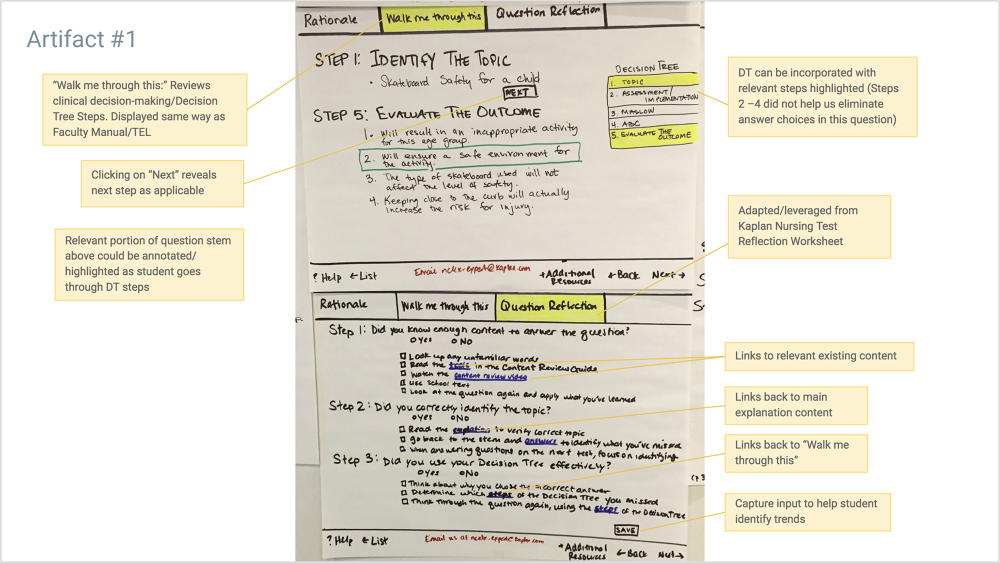 Artifact #1
"Walk me through this:" Reviews
clinical decision-making/Decision
Tree Steps. Displayed same way as
Faculty Manual/TEL
Clicking on "Next" reveals
next step as applicable
Relevant portion of question stem
above could be annotated/
highlighted as student goes
through DT steps
Rationale
Walk me through this
Question Reflection
STEP 1: IDENTIFY THE TOPIC
• Skateboard Safety for a child
NEXT
STEP 5: EVALUATE THE OUTCOME
1. Will result in an inappropriate activity
for this age group.
2. Will ensure a safe environment for
the activity.
3. The type of skateboard used will not
affect the level of safety.
4. Keeping close to the curb will actually
increase the risk for injury.
DECISION TREE
1. TOPIC
2. ASSESSMENT/
IMPLEMENTATION
3. MASLOW
4. ABC
5. EVALUATE THE
OUTCOME
? Help ← List
+Additional
Resources
← Back Next →
Rationale
Walk me through this
Question Reflection
Step 1: Did you know enough content to answer the question?
Yes No
Look up any unfamiliar words
Read the topic in the Content Review Guide
Watch the content review video
Use school text
Look at the question again and apply what you've learned
Step 2: Did you correctly identify the topic?
Yes No
Read the explanation to verify correct topic
Go back to the stem and answers to identify what you've missed
When answering questions on the next test, focus on identifying
Step 3: Did you use your Decision Tree effectively?
Yes No
Think about why you chose the incorrect answer
Determine which steps of the Decision Tree you missed
Think through the question again, using the steps of the Decision Tree
SAVE
? Help ← List
+Additional
Resources
← Back Next →
DT can be incorporated with
relevant steps highlighted (Steps
2 –4 did not help us eliminate
answer choices in this question)
Adapted/leveraged from
Kaplan Nursing Test
Reflection Worksheet
Links to relevant existing content
Links back to main
explanation content
Links back to "Walk me
through this"
Capture input to help student
identify trends